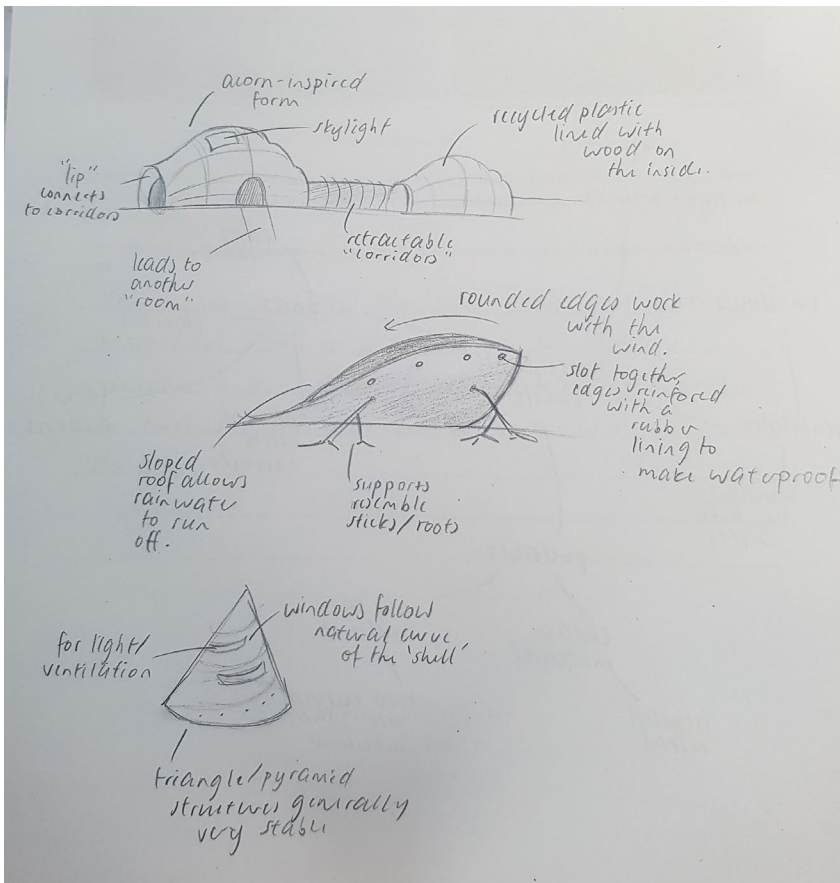 acorn-inspired
form
skylight
recycled plastic
lined with
wood on
the inside.
"lip"
connects
to corridors
leads to
another
"room"
retractable
"corridors"
rounded edges work
with the
wind.
slot together,
edges reinfored
with a
rubber
lining to
make waterproof
sloped
roof allows
rainwater
to run
off.
supports
resemble
sticks/roots
windows follow
natural curve
of the 'shell'
for light/
ventilation
triangle/pyramid
structures generally
very stable